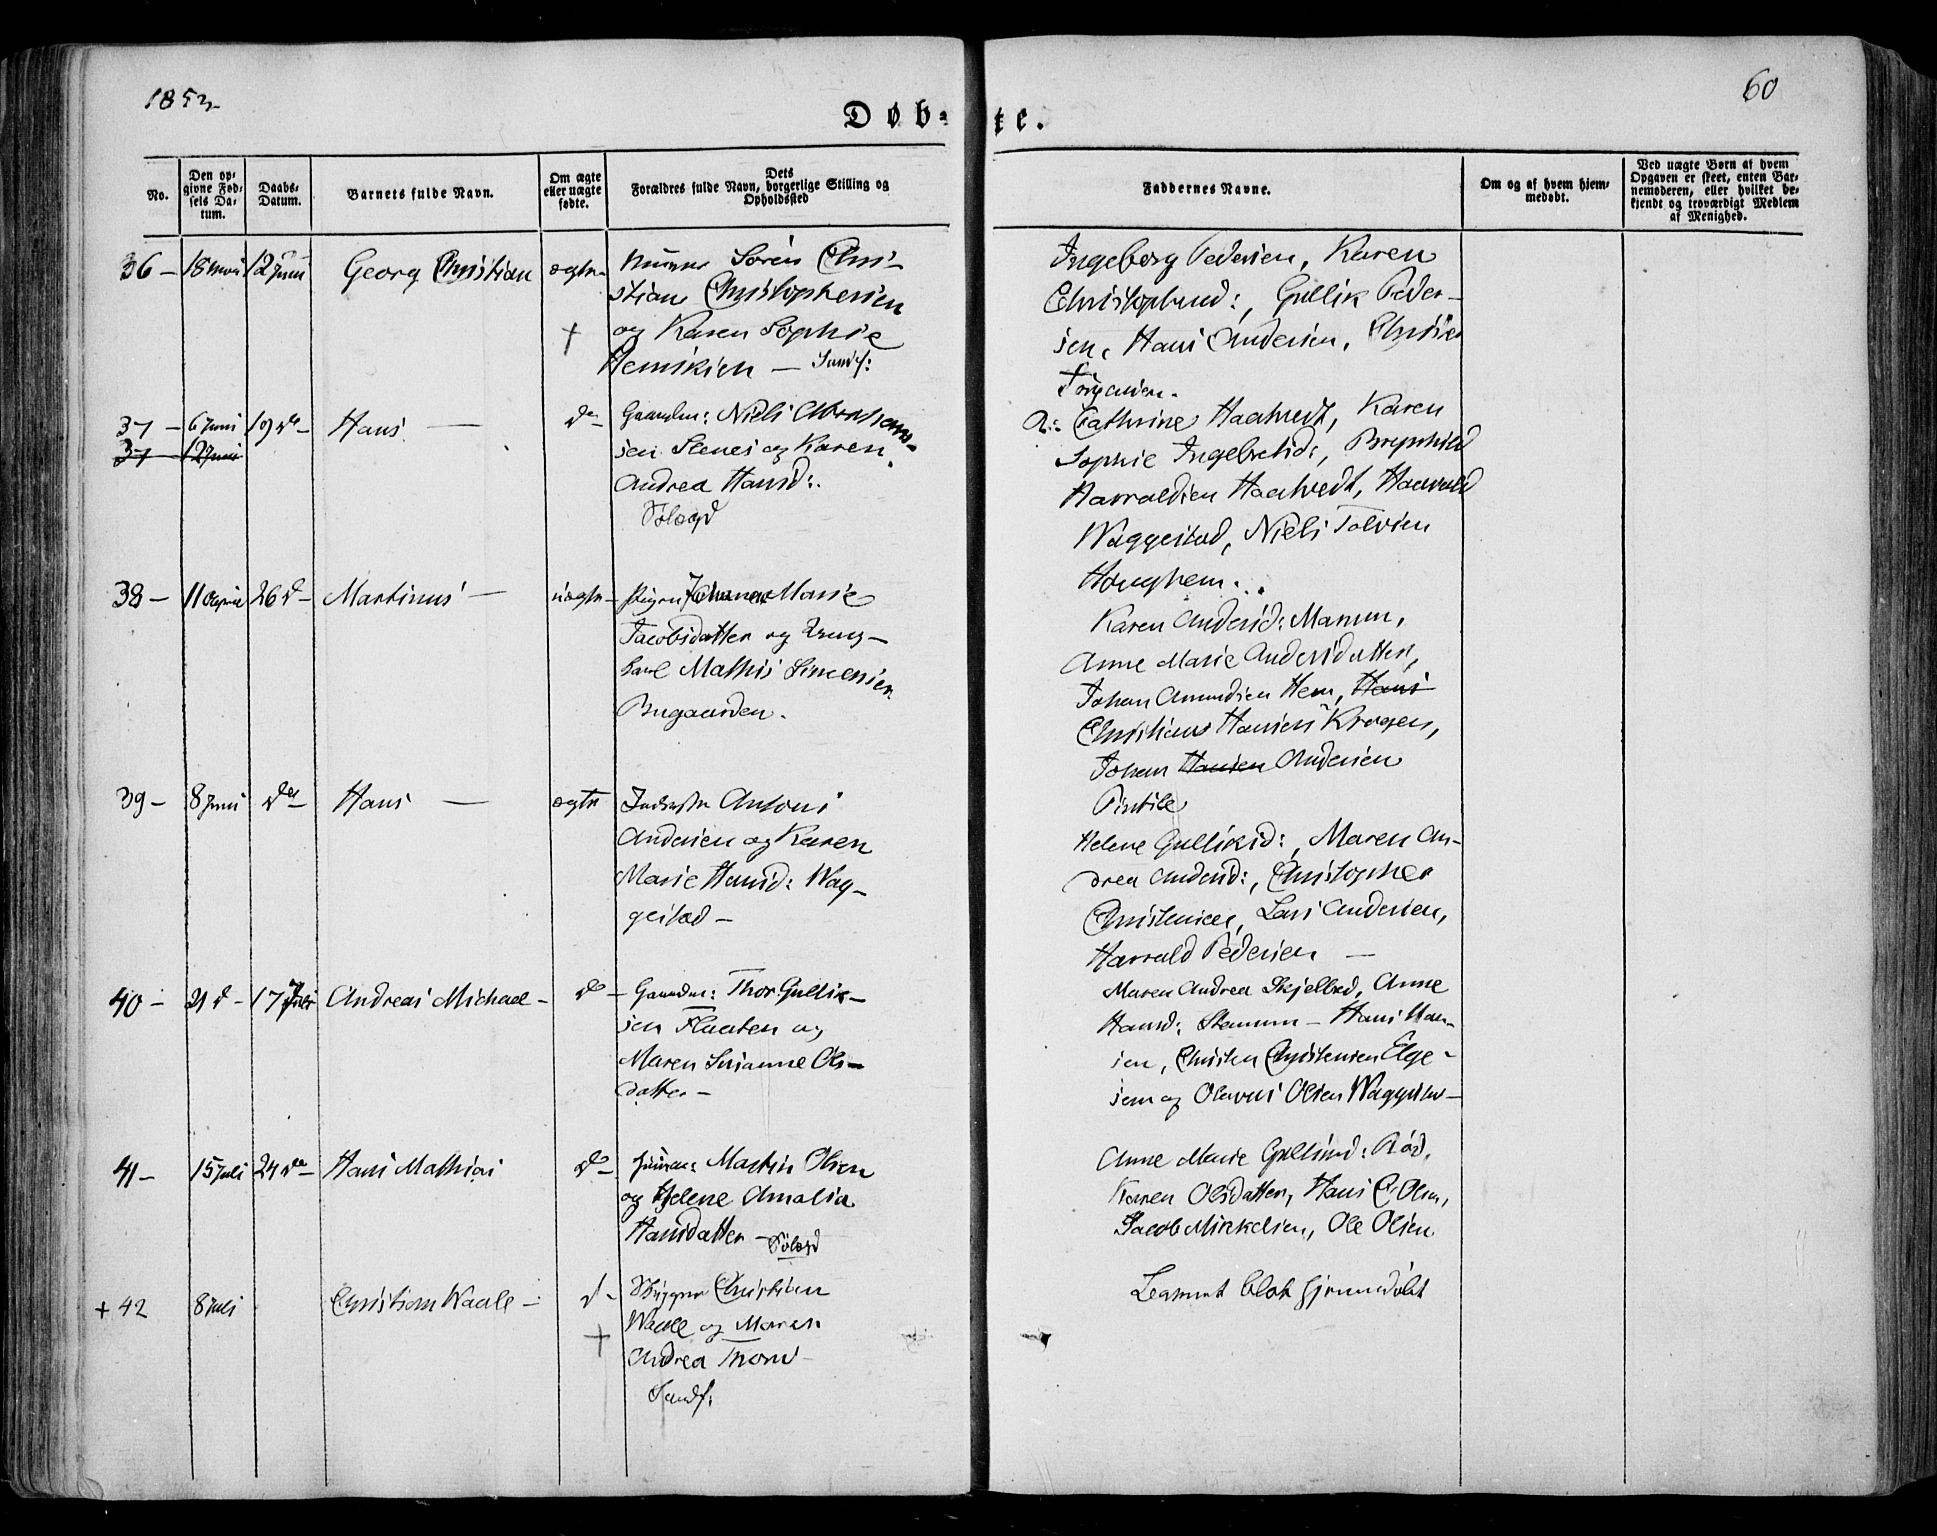 1853
60
Døb-te.
No.
Den op-
givne Fød-
sels Da-
tum.
Daabs-
Datum.
Barnets fulde Navn.
Om ægte
eller uægte
fødte.
Dets
Forældres fulde Navn, borgerlige Stilling og
Opholdssted
Faddernes Navne.
Om og af hvem hjem-
medøbt.
Ved uægte Børn af hvem
Opgaven er skeet, enten Bar-
nemoderen, eller hvilket be-
kjendt og troværdigt Medlem
af Menighed.
36 - 18 Mai 12 Juni Georg Christian ægte
Søren Chri-
stian Christophersen
+ og Karen Sophie
Henriksen - Sandf:
Ingeborg Pedersen, Karen
Christophersd:, Gullik Peder-
sen, Hans Andersen,
Jørgensen.
37 - 6 Juni 19 d - Hans - do
37 12 Juni
Gaardm: Niels Abraham-
sen Stenes og Karen
Andrea Hansd:
Cathrine Haahvedt, Karen
Sophie Ingebretsd:, Brynhild
Harraldsen Haahvedt, Haavald
Waggestad, Niels Tolvsen
Haughem.
38 - 11 April 26 d - Martinus - uægte -
Pigen Johanne Marie
Jacobsdatter og Ung-
karl Mathis Simensen
Bugaarden.
Karen Andersd: Marum,
Anne Marie Andersdatter,
Johan Amundsen Hem, Hans
Christians Hansen Kragen,
Johan Hansen Andersen
39 - 8 Juni do Hans - ægte
Inderster Antoni
Andersen og Karen
Marie Hansd: Wag-
gestad -
Helene Gulliksd:, Maren An-
drea Andersd:, Christopher
Christensen, Lars Andersen,
Harrald Pedersen -
40 - 21 d - 17 Juli Andreas Michael - do -
Gaardm: Thor Gullik-
sen Flaaten og
Maren Susanne Ols-
datter -
Maren Andrea Skjelbred, Anne
Hansd: Stamum - Hans Han-
sen, Christen Christensen Elge-
sem og Olavus Olsen
41 - 15 Juli 24 d - Hans Mathias do -
Martin Olsen
og Helene Amalia
Hansdatter -
Anne Marie Gulliksd: Rød,
Karen Olsdatter, Hans C. Olsen,
Jacob Mikkelsen, Ole Olsen
+ 42 8 Juli Christian Waale - d -
Skipper Christian
+ Waale og Maren
Andrea Thorsd -
Sandf:
blot hjemmedøbt